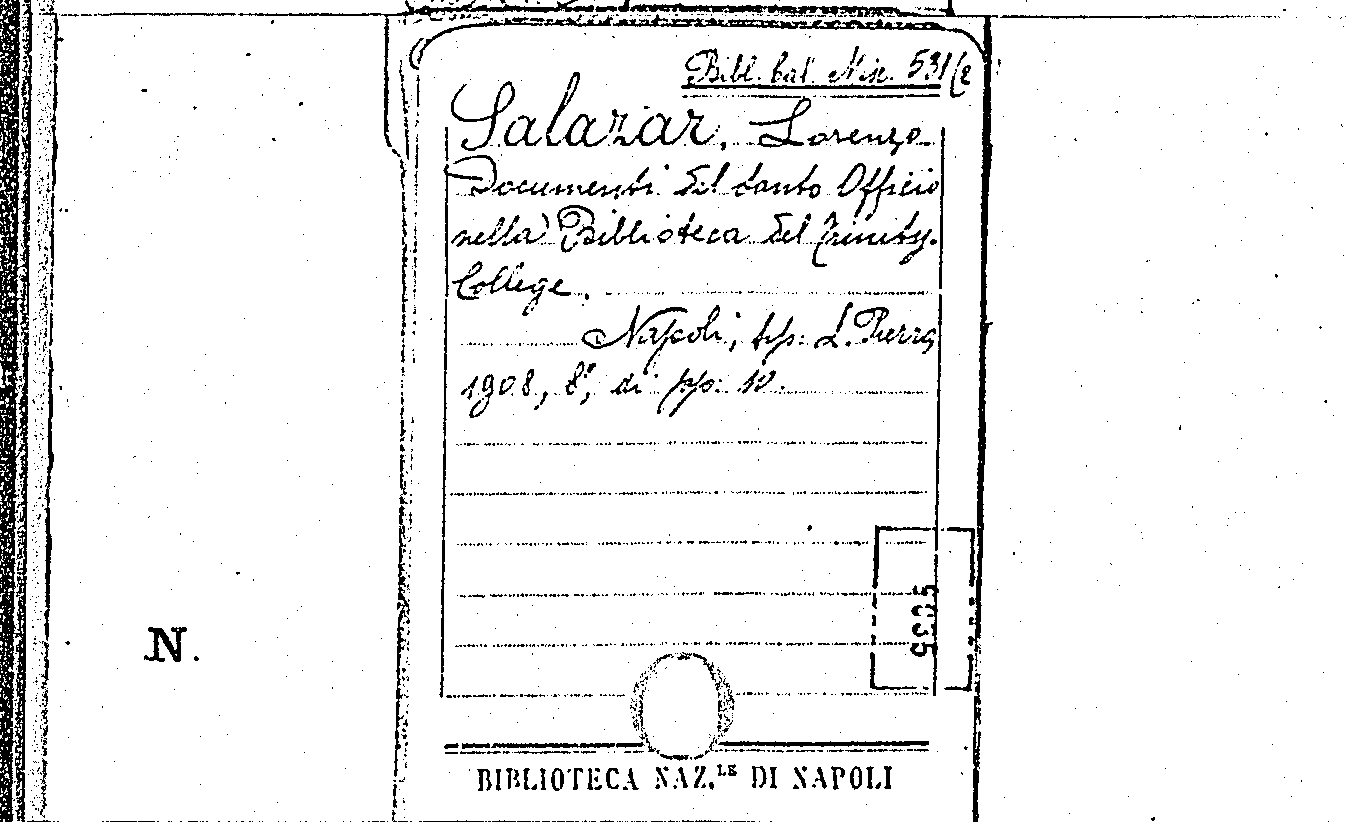 Bibl. 531
Salazar, Lorenzo
Documenti del Santo Officio
nella Biblioteca del Trinity
College.
Napoli, tip. L. Pierro,
1908, 8°, di pp. 10.
N.
BIBLIOTECA NAZ.LE DI NAPOLI